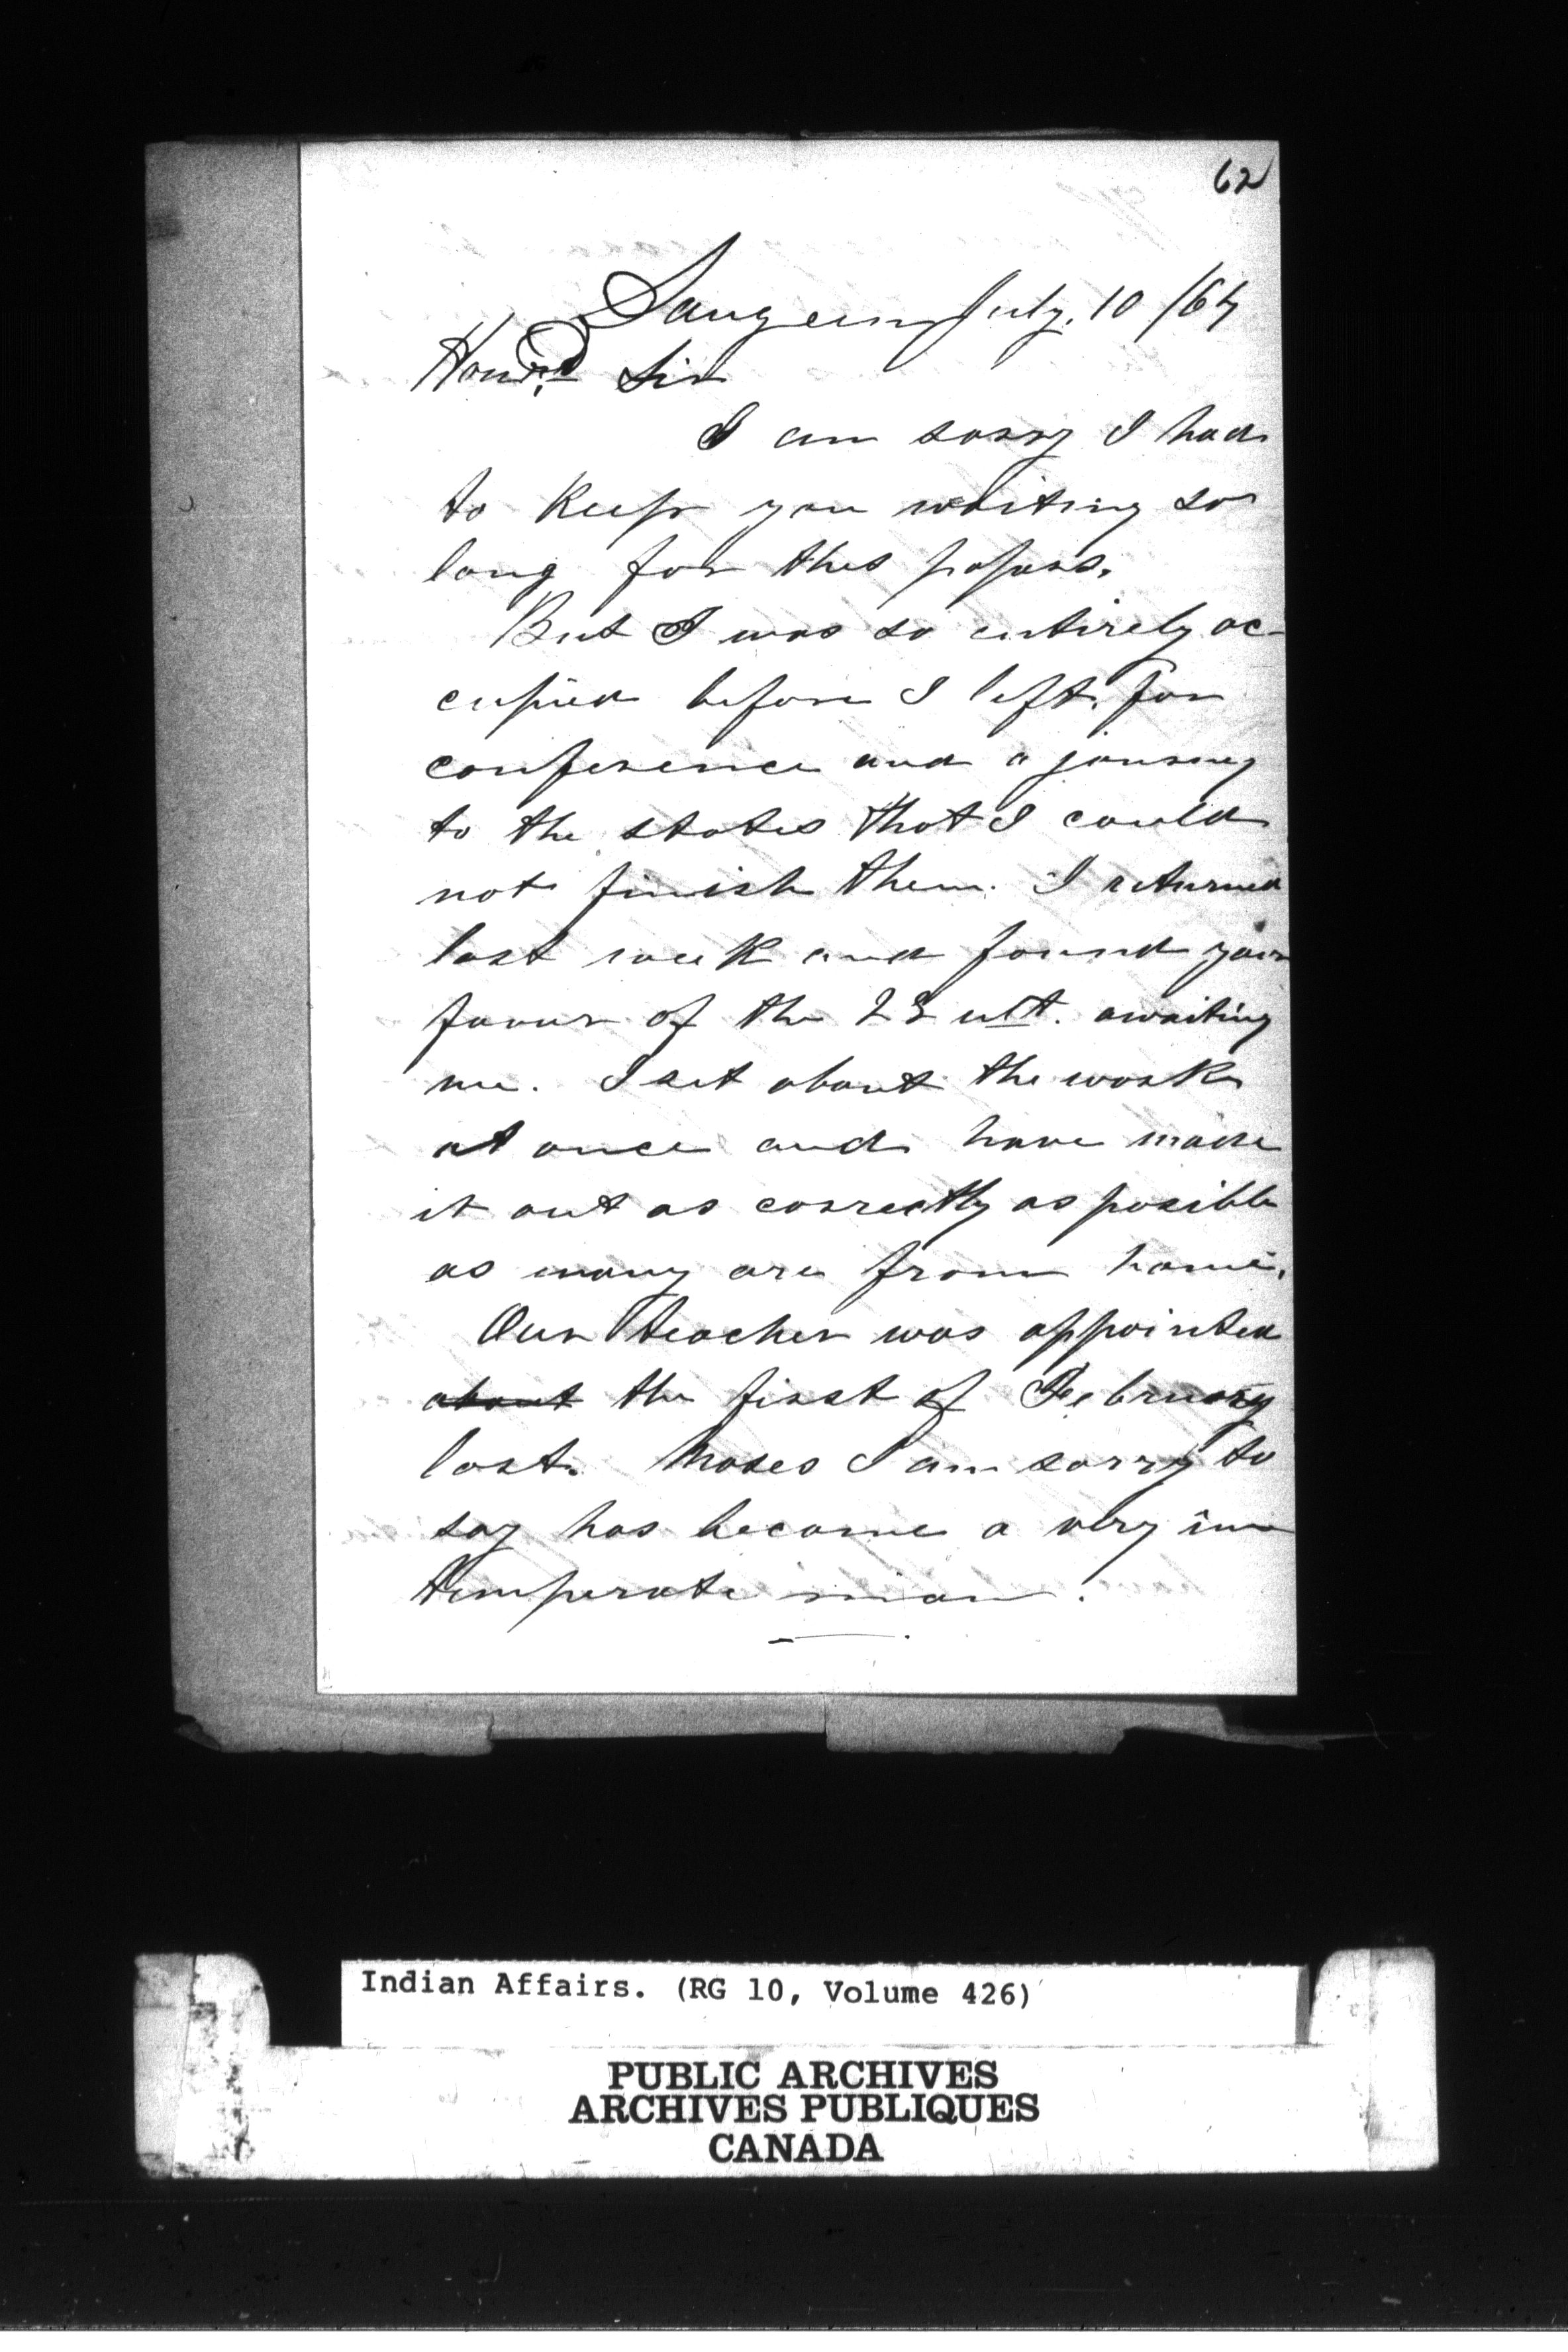 62
Saugeen July. 10 /64
Honrd. Sir
I am sorry I had
to keep you waiting so
long for thes papers.
But I was so entirely oc-
cupied before I left. for
conference and a journey
to the states that I could
not finish them. I returned
last week and found your
favour of the 23 ult. awaiting
me. I set about the work
at once and have made
it out as correctly as posible
as many are from home.
Our teacher was appointed
about the first of February
last. Moses I am sorry to
say has become a very in
temperate man.
Indian Affairs. (RG 10, Volume 426)
PUBLIC ARCHIVES
ARCHIVES PUBLIQUES
CANADA